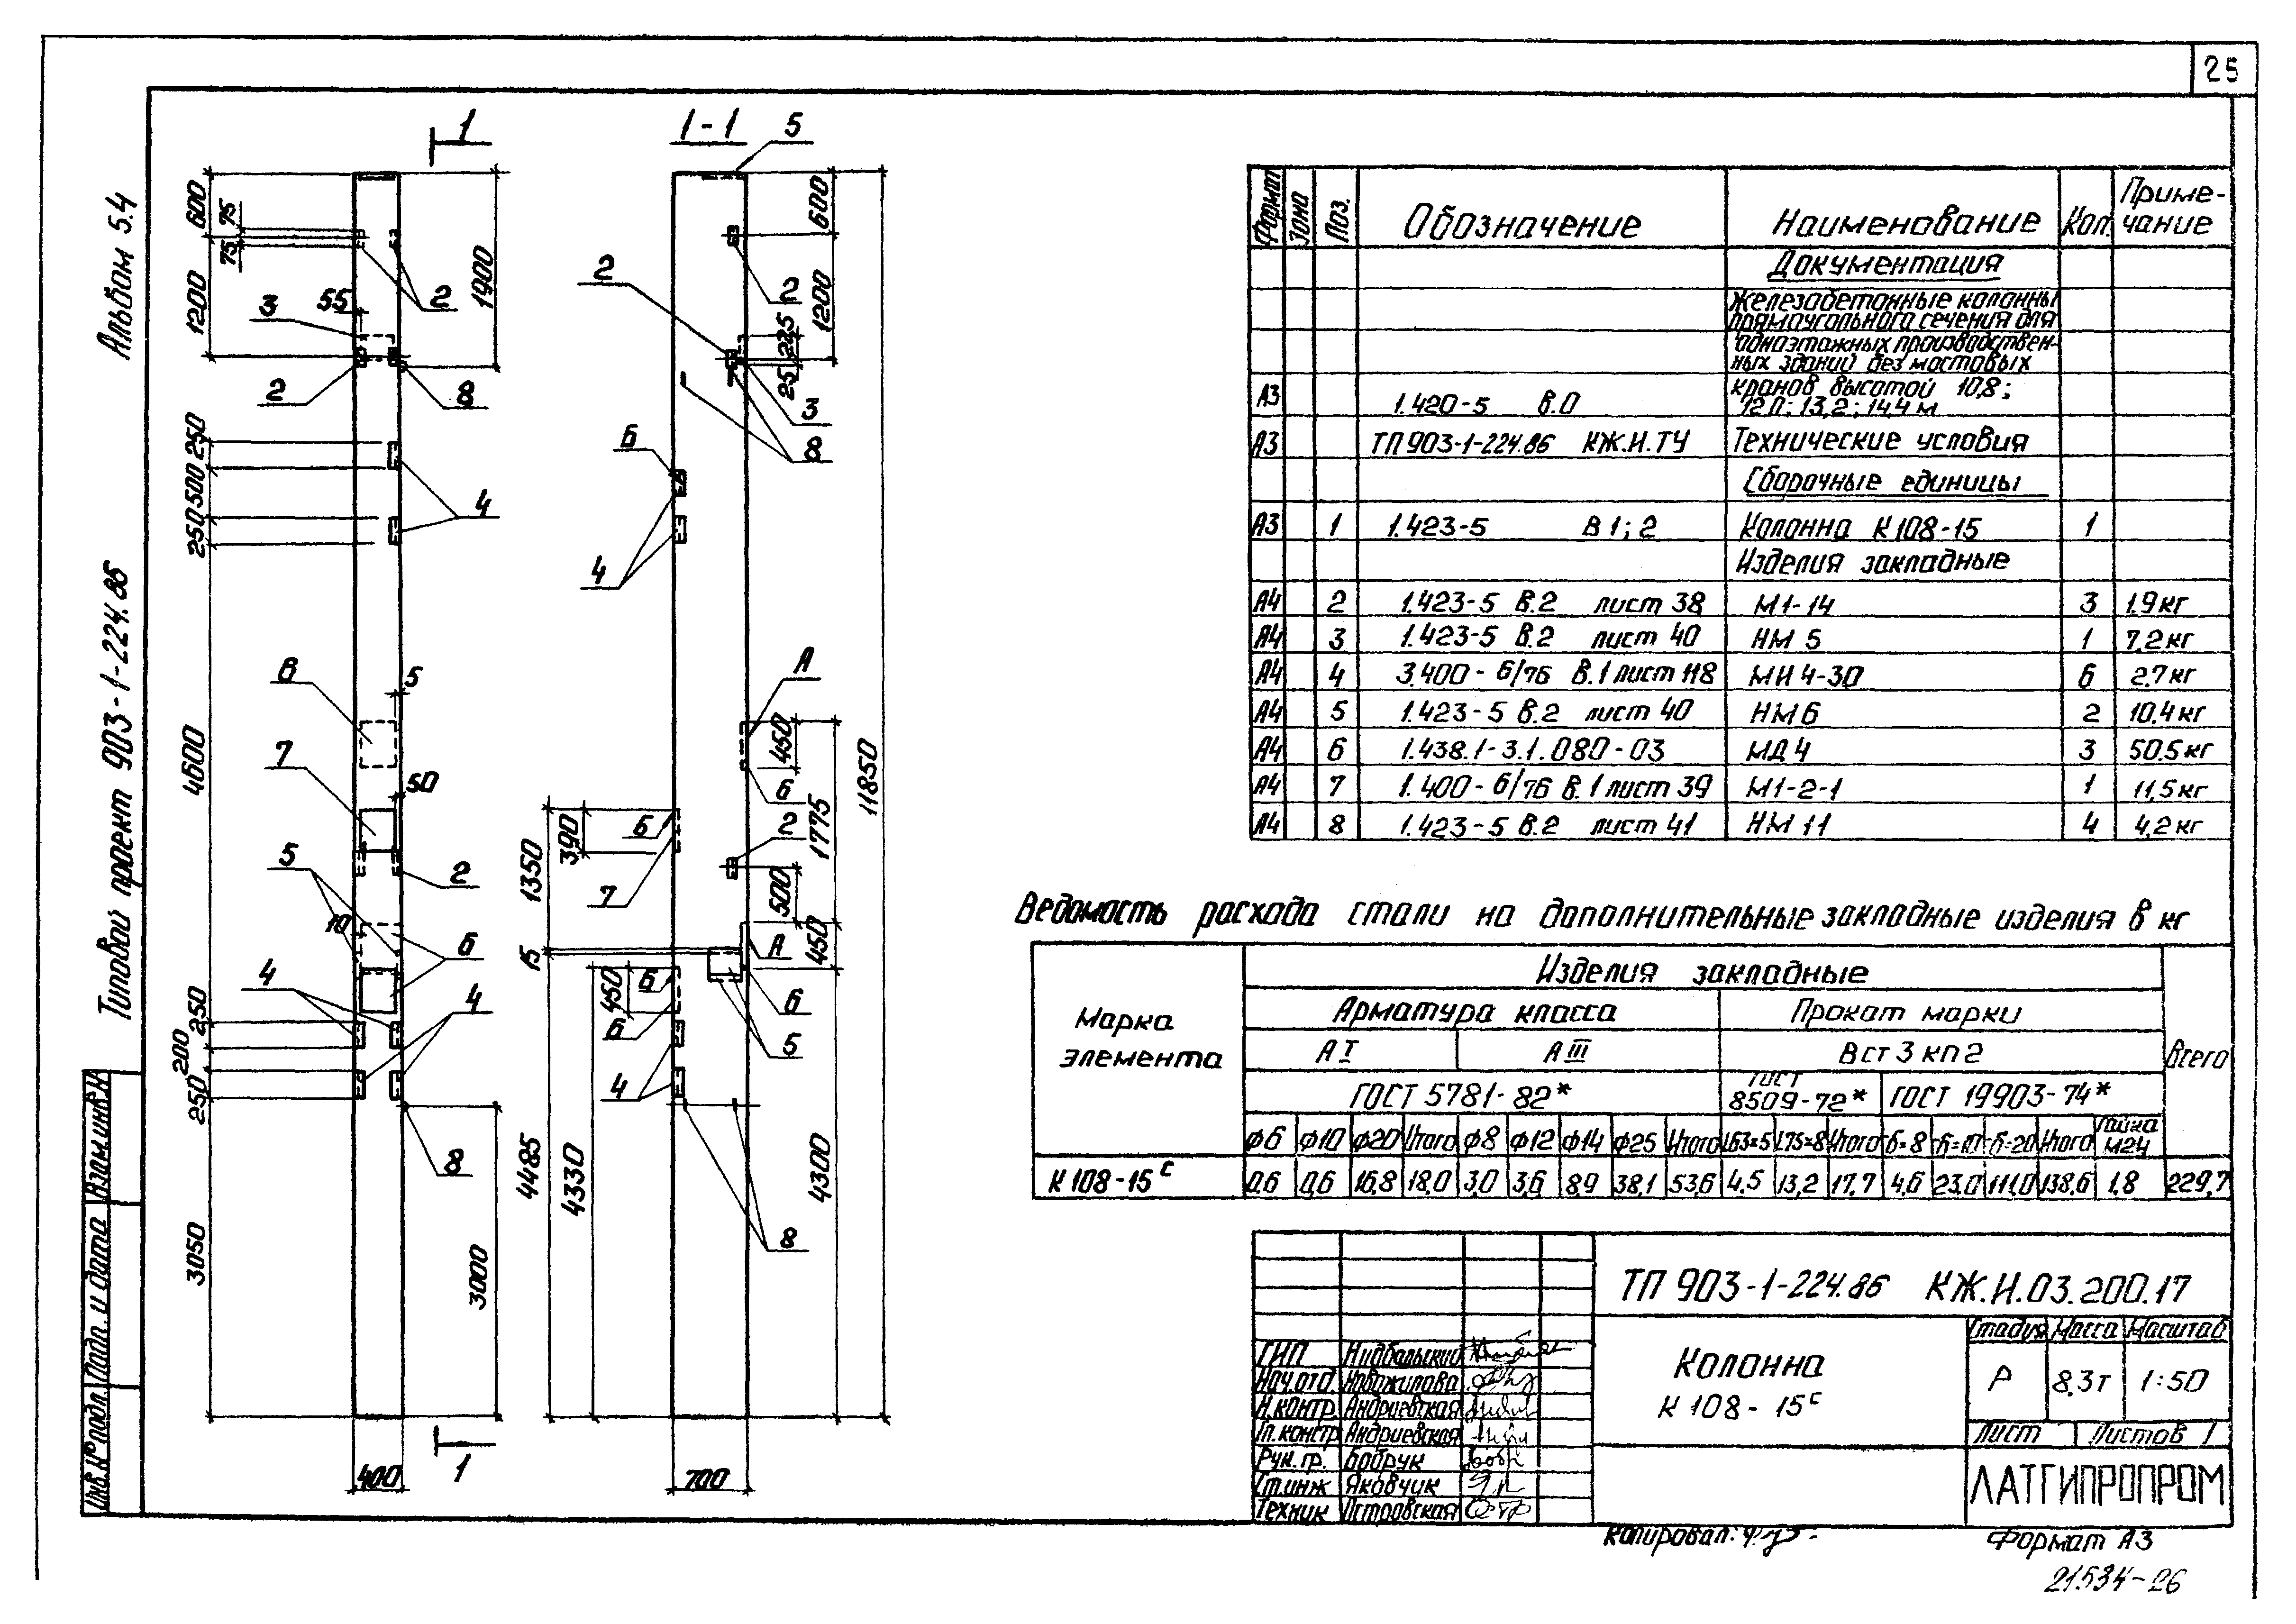 25
Альбом 5.4
Типовой проект 903-1-224.86
Взам.инв.N
Подп. и дата
Инв.№подл.
1
1-1
5
600
75
75
1200
55
3
2
1900
2
8
250
500
250
4
4600
в
5
7
50
5
2
10
6
4
4
250
200
250
8
3050
3000
400
1
600
2
2
1200
225
25
3
8
Б
4
А
450
6
1775
11850
2
500
450
А
1350
390
Б
7
15
450
Б
6
5
Б
4
4485
4330
4300
8
700
Формат Зона Поз. Обозначение Наименование Кол. Приме-
чание
Документация
Железобетонные колонны
прямоугольного сечения для
одноэтажных производствен-
ных зданий без мостовых
кранов высотой 10,8;
А3 1.420-5 в.0 12.0; 13,2; 14,4 м
А3 ТП 903-1-224.86 КЖ.И.ТУ Технические условия
Сборочные единицы
А3 1 1.423-5 В 1; 2 Колонна К 108-15 1
Изделия закладные
А4 2 1.423-5 в.2 лист 38 М1-14 3 1.9 кг
А4 3 1.423-5 в.2 лист 40 НМ 5 1 7,2 кг
А4 4 3.400-6/76 в.1 лист 118 МИ 4-30 6 2.7 кг
А4 5 1.423-5 в.2 лист 40 НМ 6 2 10,4 кг
А4 6 1.438.1-3.1.080-03 МД 4 3 50.5 кг
А4 7 1.400-6/76 в.1 лист 39 М1-2-1 1 11,5 кг
А4 8 1.423-5 в.2 лист 41 НМ 11 4 4,2 кг
Ведомость расхода стали на дополнительные закладные изделия в кг
Марка
элемента
Изделия закладные
Арматура класса Прокат марки
А I А III В ст 3 кп 2 Всего
ГОСТ 5781-82* ГОСТ 8509-72* ГОСТ 19903-74*
ф6 ф10 ф20 Итого ф8 ф12 ф14 ф25 Итого L63=5 L75=8 Итого б=8 б=10 б=20 Итого Гайка М24
К 108-15 с 0,6 0,6 16,8 18,0 3,0 3,6 8,9 38,1 53,6 4,5 13,2 17,7 4,6 23,0 111,0 138,6 1,8 229,7
ТП 903-1-224.86 КЖ.И.03.200.17
Колонна
К 108-15с
Стадия Масса Масштаб
Р 8,3т 1:50
Лист Листов 1
ГИП Нидбальский
Нач.отд. Новожилова
Н.контр Андриевская
Гл.констр Андриевская
Рук.гр. Бобрук
Ст.инж Яковчик
Техник Петровская
ЛАТГИПРОПРОМ
Копировал:
Формат А3
21534-26